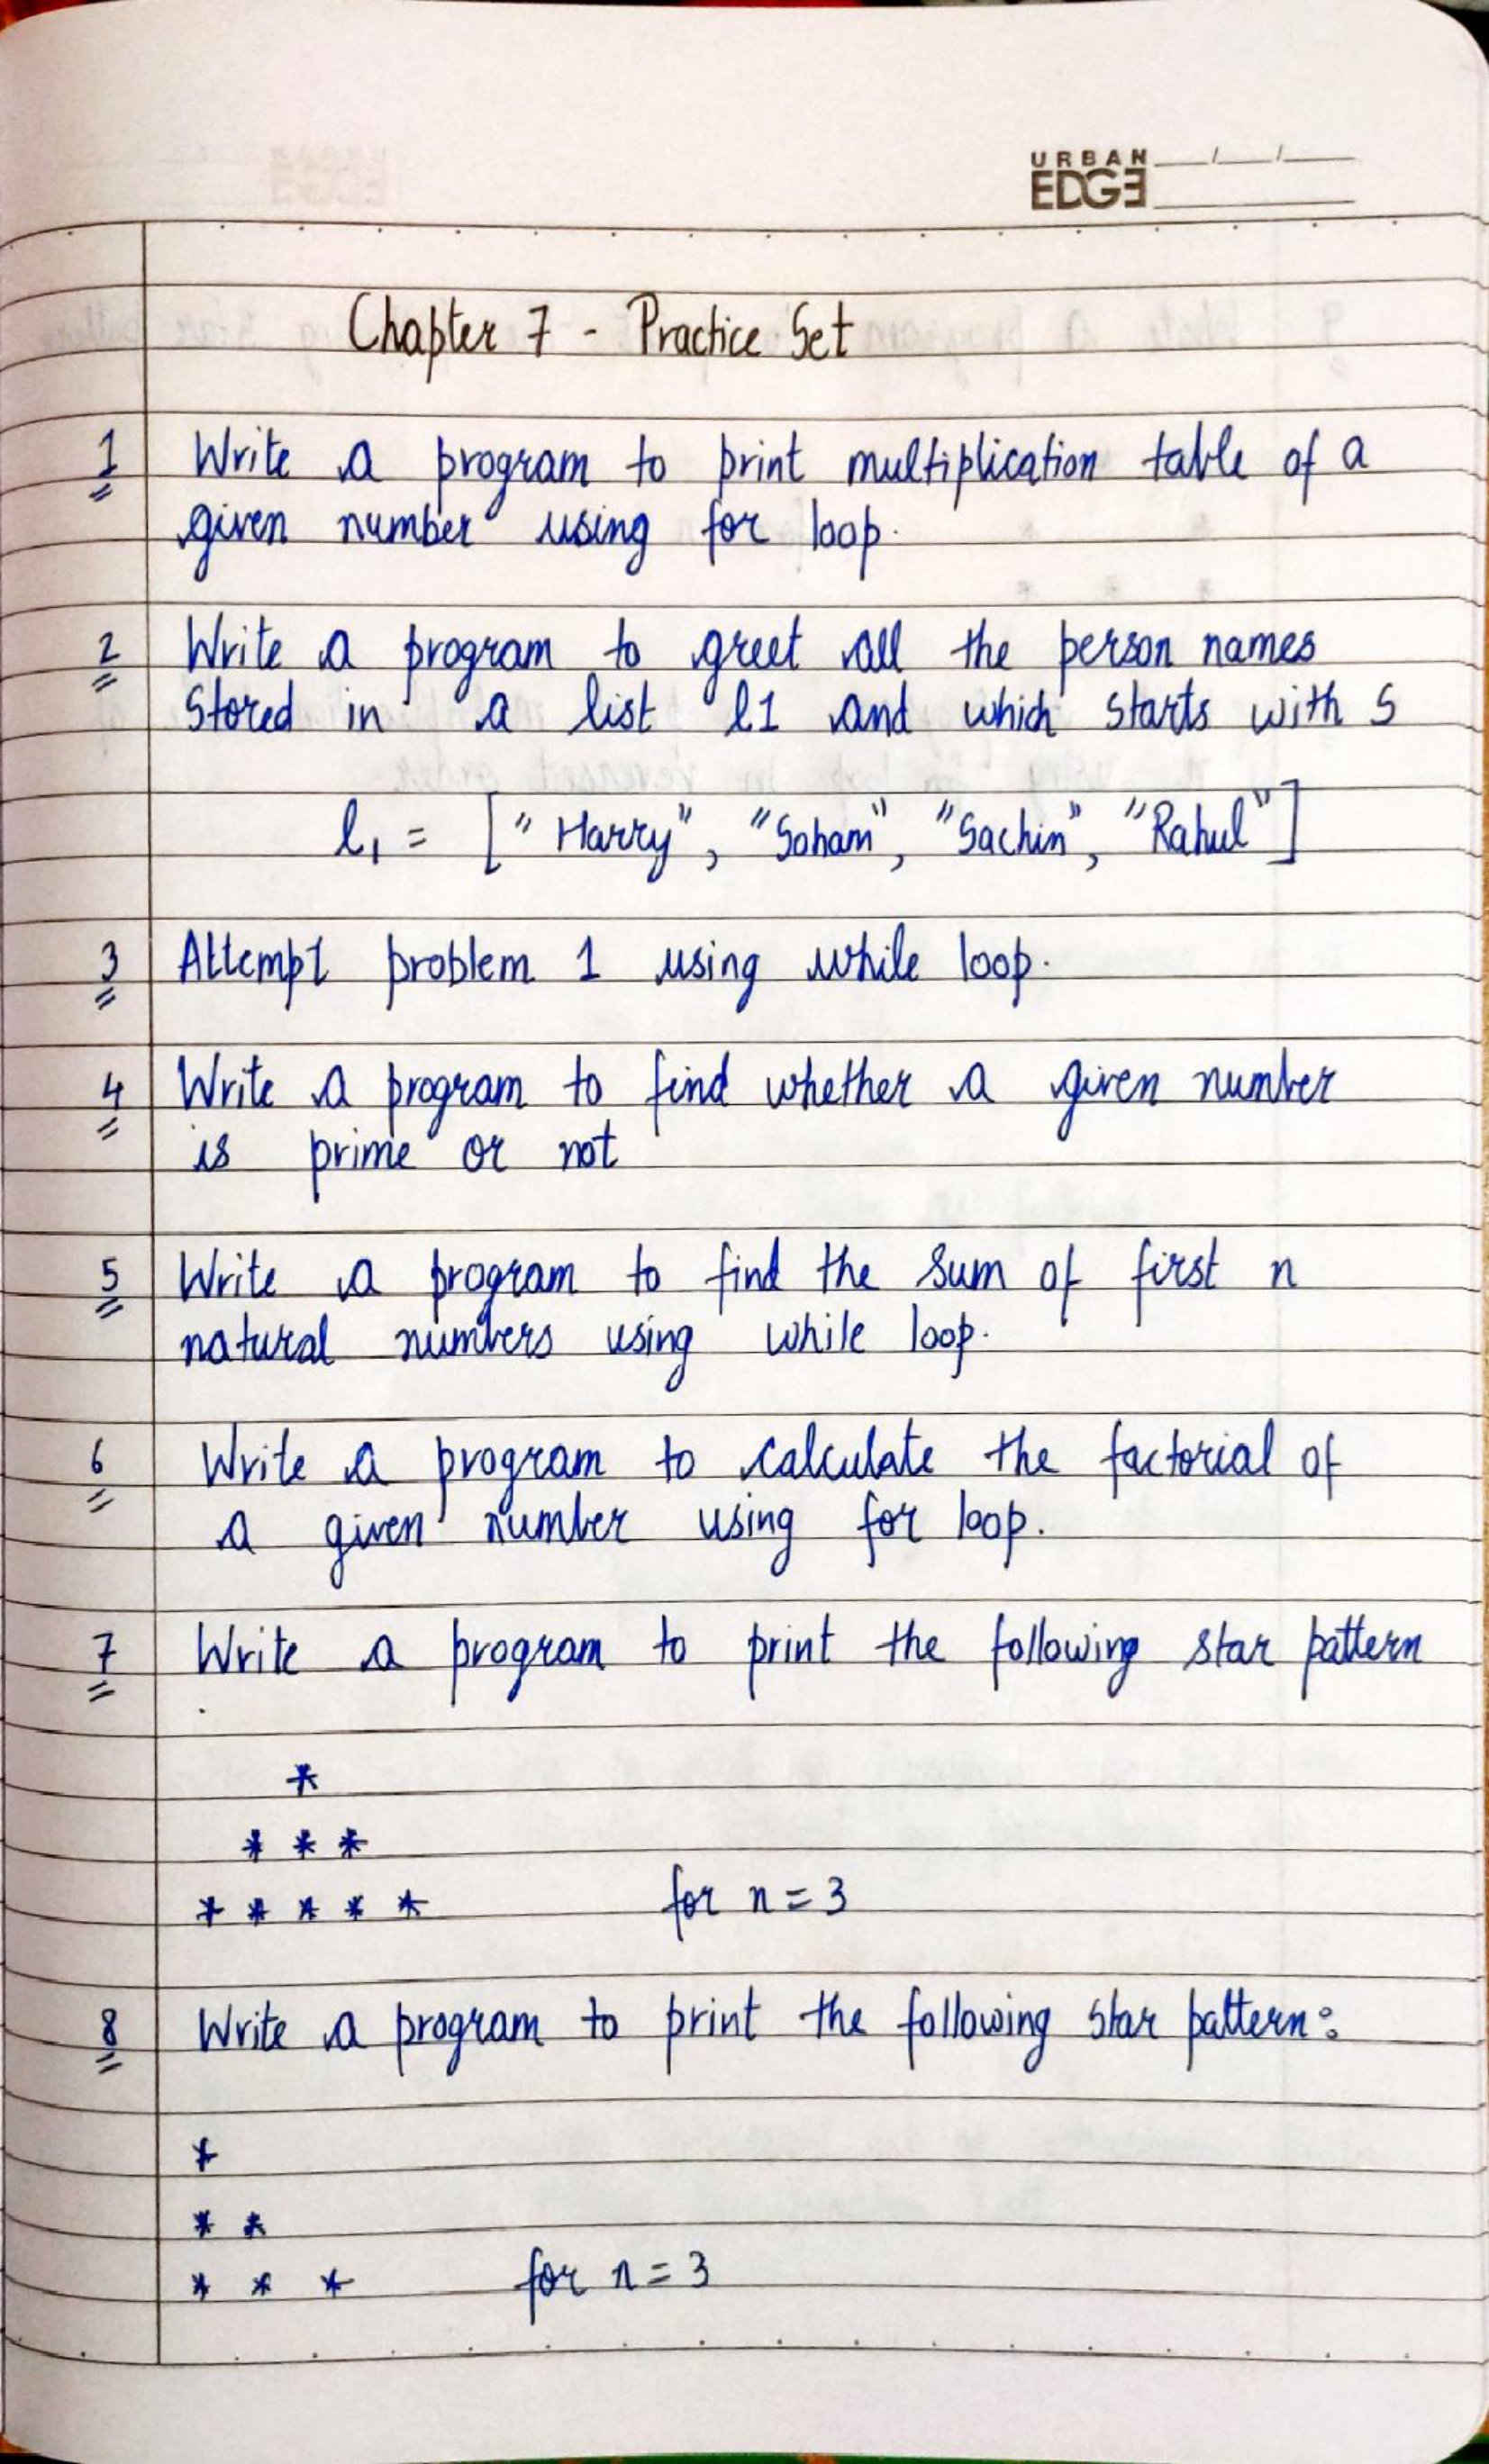 URBAN
EDGE
Chapter 7 - Practice Set
1 Write a program to print multiplication table of a
given number using for loop.
2 Write a program to greet all the person names
Stored in a list l1 and which starts with S
l1 = ["Harry", "Soham", "Sachin", "Rahul"]
3 Attempt problem 1 using while loop.
4 Write a program to find whether a given number
is prime or not
5 Write a program to find the Sum of first n
natural numbers using while loop.
6 Write a program to calculate the factorial of
a given number using for loop.
7 Write a program to print the following star pattern
*
* * *
* * * * * for n = 3
8 Write a program to print the following star pattern:
*
* *
* * * for n = 3